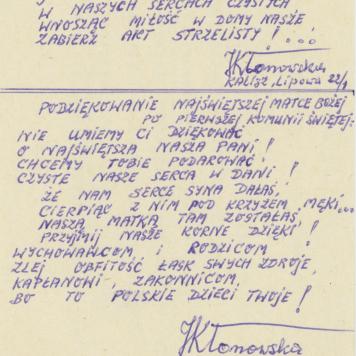 W NASZYCH SERCACH CZYSTYCH
WNOSZĄC MIŁOŚĆ W DOMY NASZE
ZABIERZ AKT STRZELISTY! ...
JKłonowska
KALISZ, LIPOWA 22/9
PODZIĘKOWANIE NAJŚWIĘTSZEJ MATCE BOŻEJ
PO PIERWSZEJ KOMUNII ŚWIĘTEJ:
NIE UMIEMY CI DZIĘKOWAĆ
O NAJŚWIĘTSZA NASZA PANI!
CHCEMY TOBIE PODAROWAĆ
CZYSTE NASZE SERCA W DANI!
ŻE NAM SERCE SYNA DAŁAŚ,
CIERPIĄC Z NIM POD KRZYŻEM, MĘKI...
NASZĄ MATKĄ TAM ZOSTAŁAŚ,
PRZYJMIJ NASZE KORNE DZIĘKI!
WYCHOWAWCOM, I RODZICOM
ZLEJ OBFITOŚĆ ŁASK SWYCH ZDROJE,
KAPŁANOWI, ZAKONNICOM,
BO TO POLSKIE DZIECI TWOJE!
JKłonowska